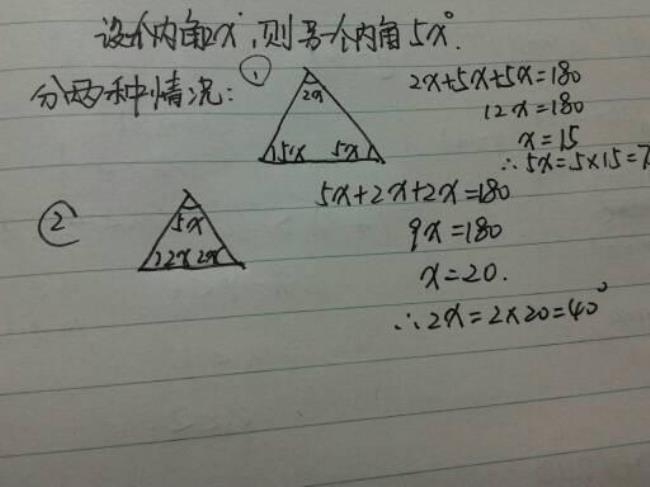 设一个内角2x°,则另一个内角5x°.
分两种情况:
①
2x
5x 5x
2x+5x+5x=180
12x=180
x=15
∴5x=5×15=7
②
5x
2x 2x
5x+2x+2x=180
9x=180
x=20.
∴2x=2×20=40°